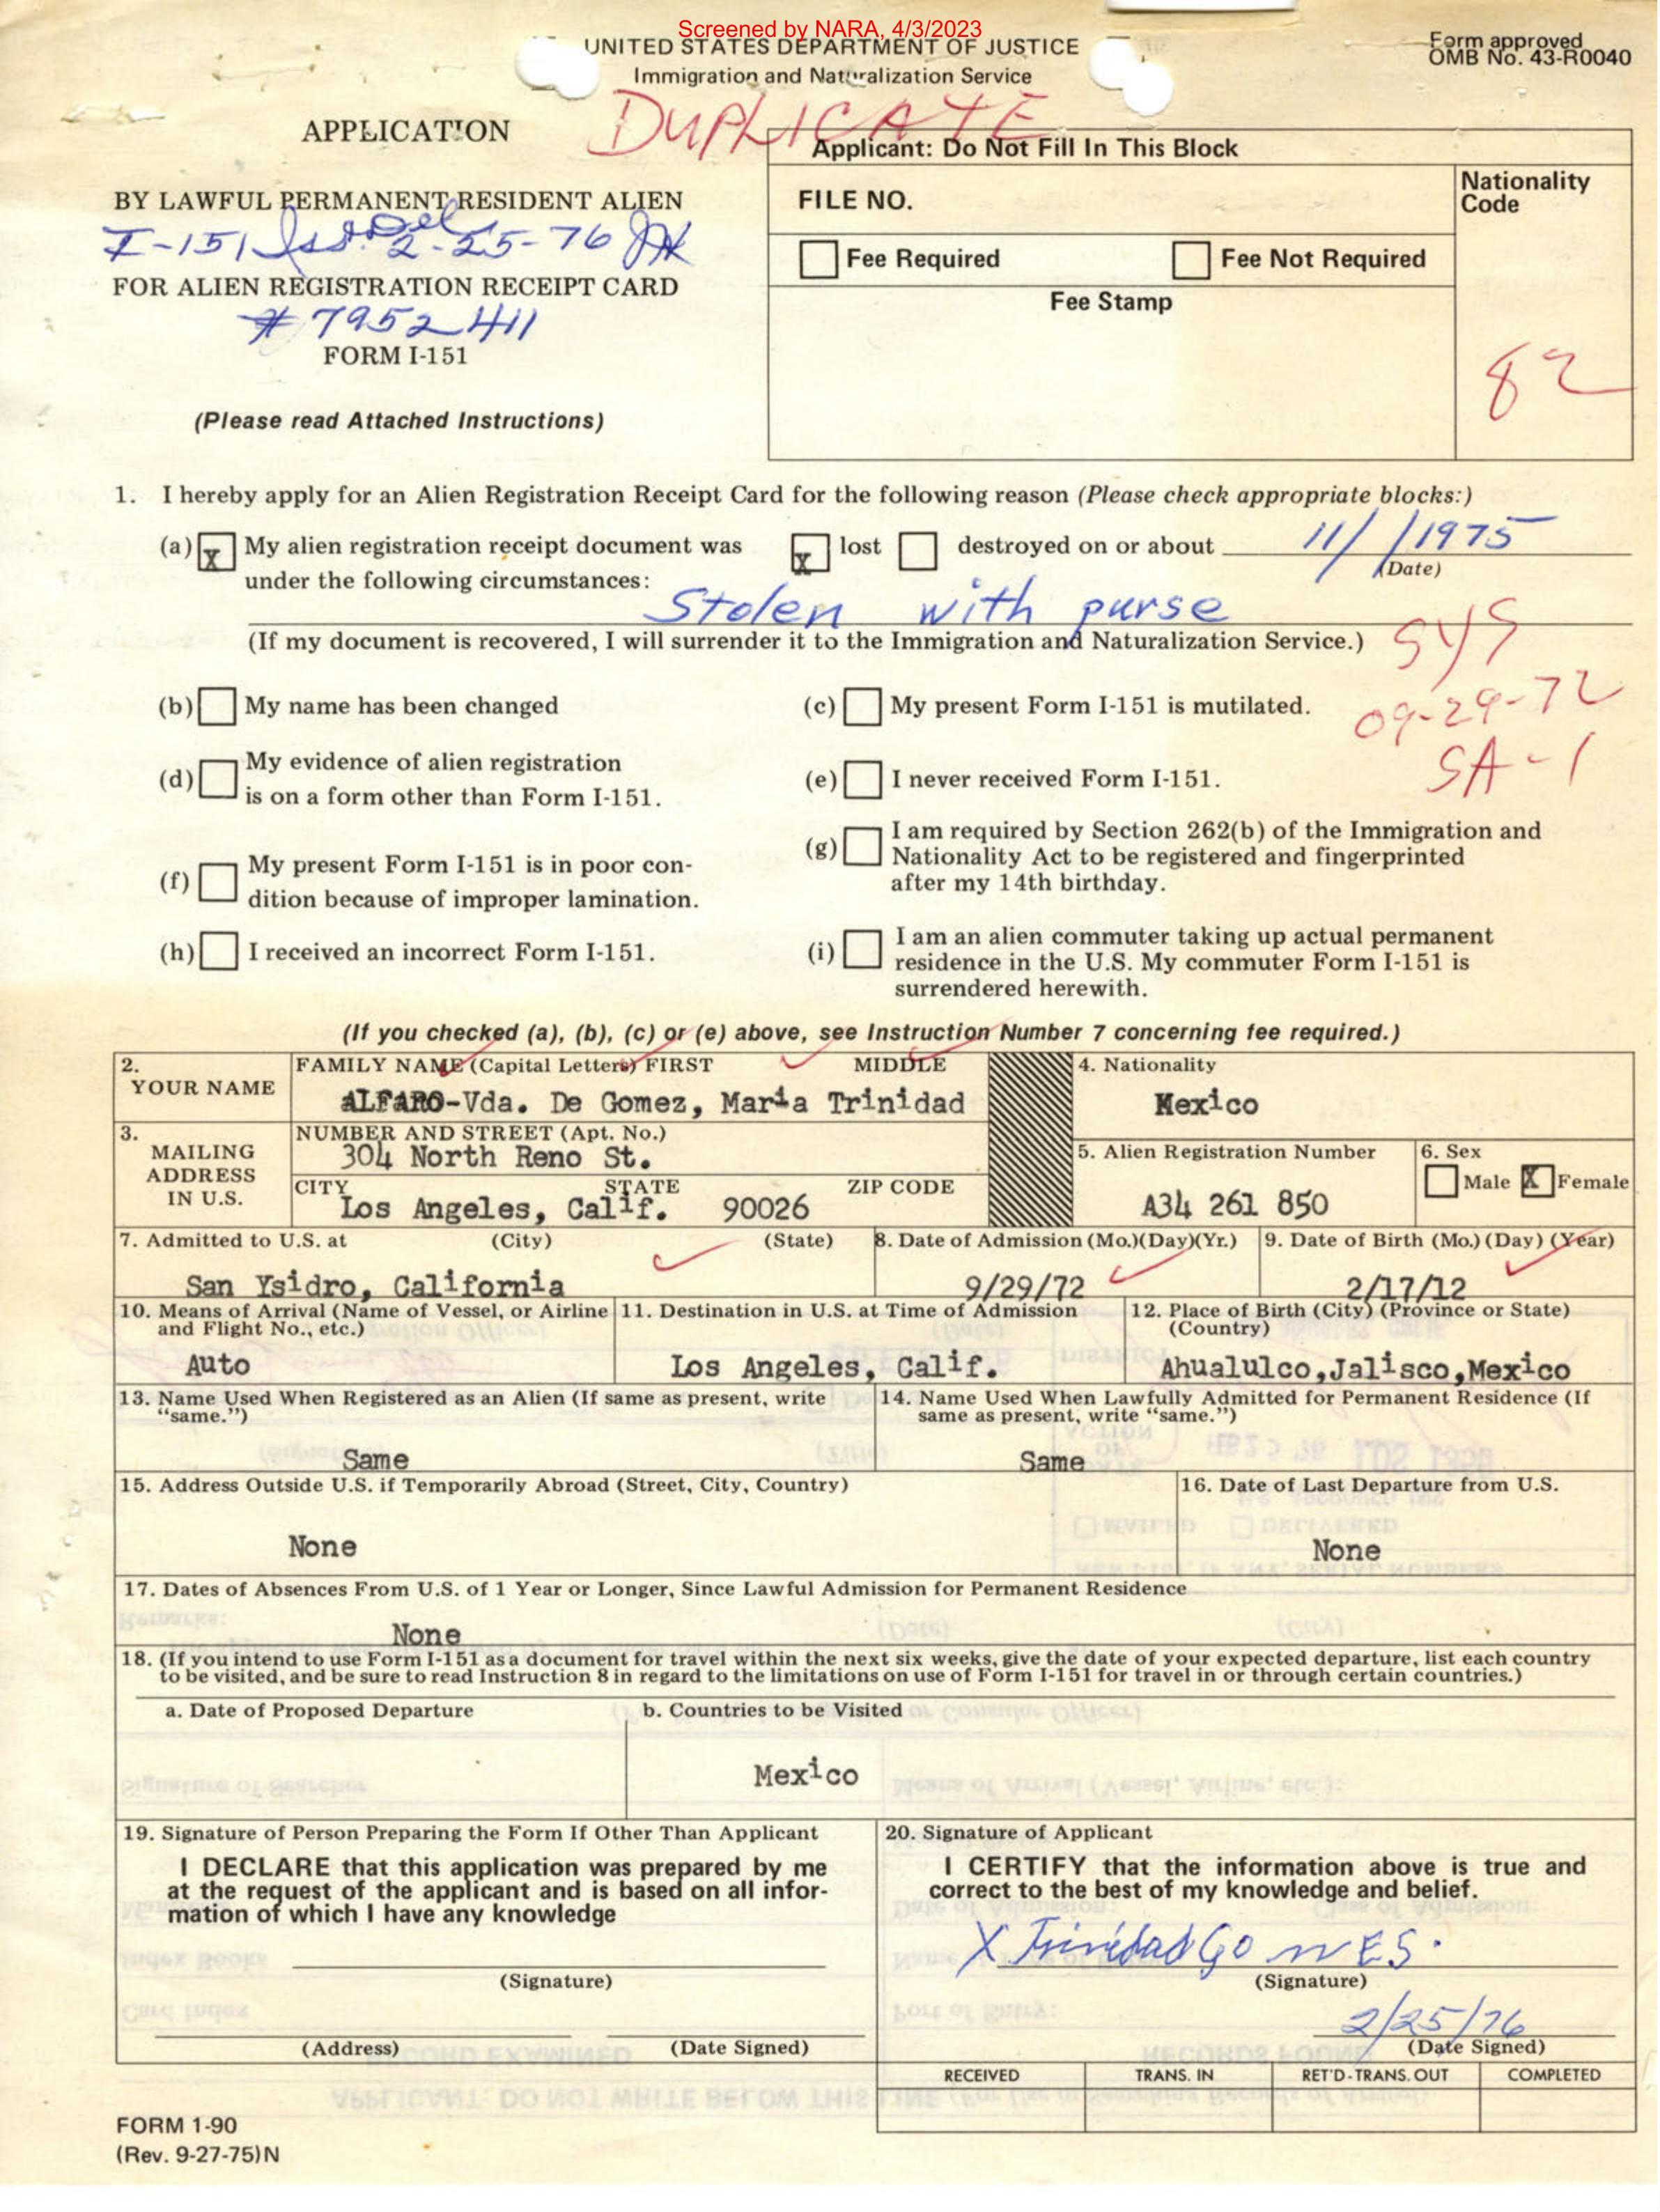 Screened by NARA, 4/3/2023
UNITED STATES DEPARTMENT OF JUSTICE
Immigration and Naturalization Service
Form approved
OMB No. 43-R0040
DUPLICATE
APPLICATION
BY LAWFUL PERMANENT RESIDENT ALIEN
I-151 Iss Del 2-25-76
FOR ALIEN REGISTRATION RECEIPT CARD
# 7952411
FORM I-151
(Please read Attached Instructions)
Applicant: Do Not Fill In This Block
FILE NO.
Nationality
Code
Fee Required
Fee Not Required
Fee Stamp
82
1. I hereby apply for an Alien Registration Receipt Card for the following reason (Please check appropriate blocks:)
(a) X My alien registration receipt document was X lost destroyed on or about 11/ /1975
(Date)
under the following circumstances:
Stolen with purse
(If my document is recovered, I will surrender it to the Immigration and Naturalization Service.)
SYS
09-29-72
SA-1
(b) My name has been changed
(c) My present Form I-151 is mutilated.
(d) My evidence of alien registration
is on a form other than Form I-151.
(e) I never received Form I-151.
(f) My present Form I-151 is in poor con-
dition because of improper lamination.
(g) I am required by Section 262(b) of the Immigration and
Nationality Act to be registered and fingerprinted
after my 14th birthday.
(h) I received an incorrect Form I-151.
(i) I am an alien commuter taking up actual permanent
residence in the U.S. My commuter Form I-151 is
surrendered herewith.
(If you checked (a), (b), (c) or (e) above, see Instruction Number 7 concerning fee required.)
2. YOUR NAME
FAMILY NAME (Capital Letters) FIRST MIDDLE
ALFARO-Vda. De Gomez, Maria Trinidad
4. Nationality
Mexico
3. MAILING
ADDRESS
IN U.S.
NUMBER AND STREET (Apt. No.)
304 North Reno St.
CITY STATE ZIP CODE
Los Angeles, Calif. 90026
5. Alien Registration Number
A34 261 850
6. Sex
Male X Female
7. Admitted to U.S. at (City) (State)
San Ysidro, California
8. Date of Admission (Mo.)(Day)(Yr.)
9/29/72
9. Date of Birth (Mo.) (Day) (Year)
2/17/12
10. Means of Arrival (Name of Vessel, or Airline
and Flight No., etc.)
Auto
11. Destination in U.S. at Time of Admission
Los Angeles, Calif.
12. Place of Birth (City) (Province or State)
(Country)
Ahualulco,Jalisco,Mexico
13. Name Used When Registered as an Alien (If same as present, write
“same.”)
Same
14. Name Used When Lawfully Admitted for Permanent Residence (If
same as present, write “same.”)
Same
15. Address Outside U.S. if Temporarily Abroad (Street, City, Country)
None
16. Date of Last Departure from U.S.
None
17. Dates of Absences From U.S. of 1 Year or Longer, Since Lawful Admission for Permanent Residence
None
18. (If you intend to use Form I-151 as a document for travel within the next six weeks, give the date of your expected departure, list each country
to be visited, and be sure to read Instruction 8 in regard to the limitations on use of Form I-151 for travel in or through certain countries.)
a. Date of Proposed Departure
b. Countries to be Visited
Mexico
19. Signature of Person Preparing the Form If Other Than Applicant
I DECLARE that this application was prepared by me
at the request of the applicant and is based on all infor-
mation of which I have any knowledge
(Signature)
(Address) (Date Signed)
20. Signature of Applicant
I CERTIFY that the information above is true and
correct to the best of my knowledge and belief.
X Trinidad GomES.
(Signature)
2/25/76
(Date Signed)
RECEIVED TRANS. IN RET'D-TRANS. OUT COMPLETED
FORM 1-90
(Rev. 9-27-75)N